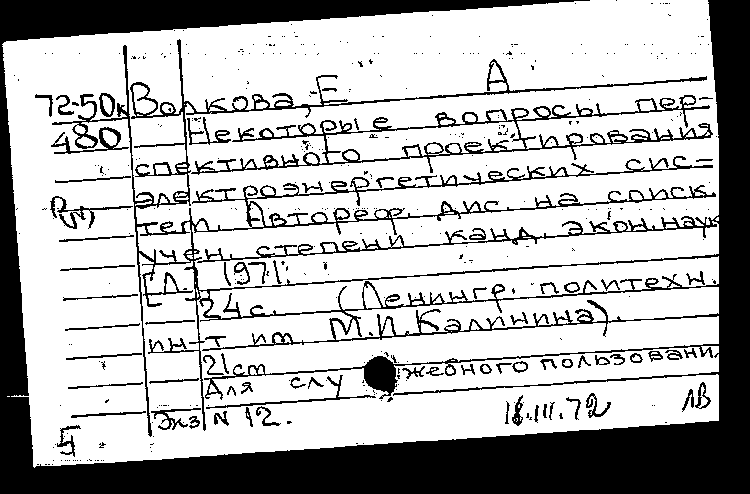 72-50к Волкова, Е А
480 Некоторые вопросы пер=
спективного проектирования
электроэнергетических сис=
тем. Автореф. дис. на соиск.
учен. степени канд. экон. наук
[Л.] 1971.
24 с. (Ленингр. политехн.
ин-т им. М.И. Калинина).
21 cm
Для слу жебного пользовани
Экз N 12. 16.III.72 ЛВ
5